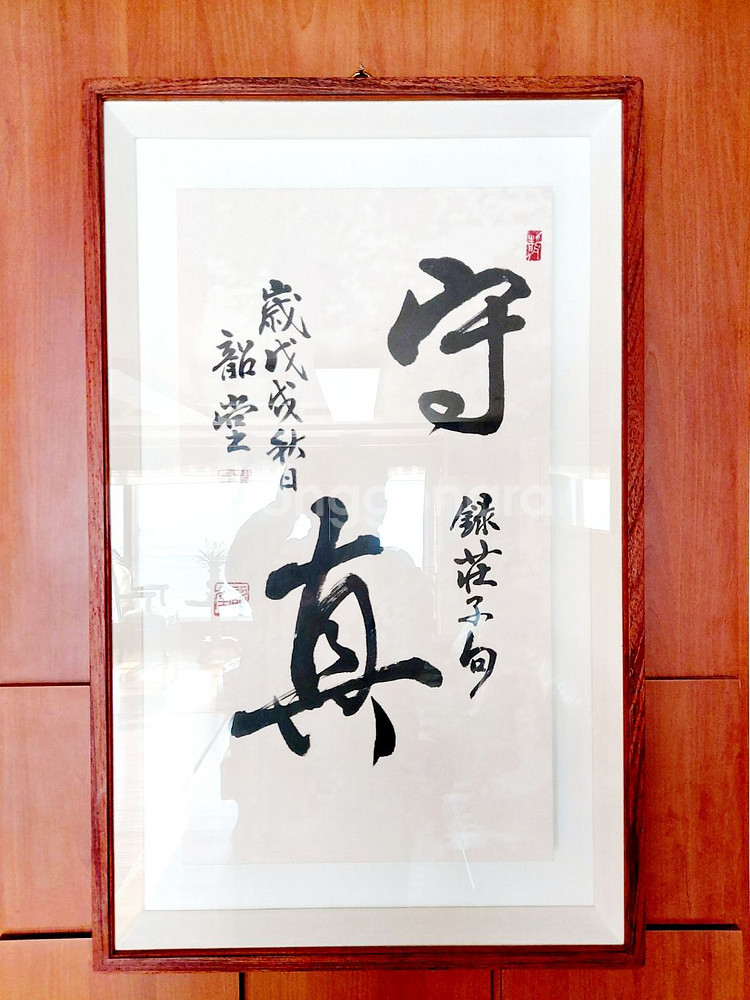 守真
録莊子句
歳戊戌秋日
韶堂